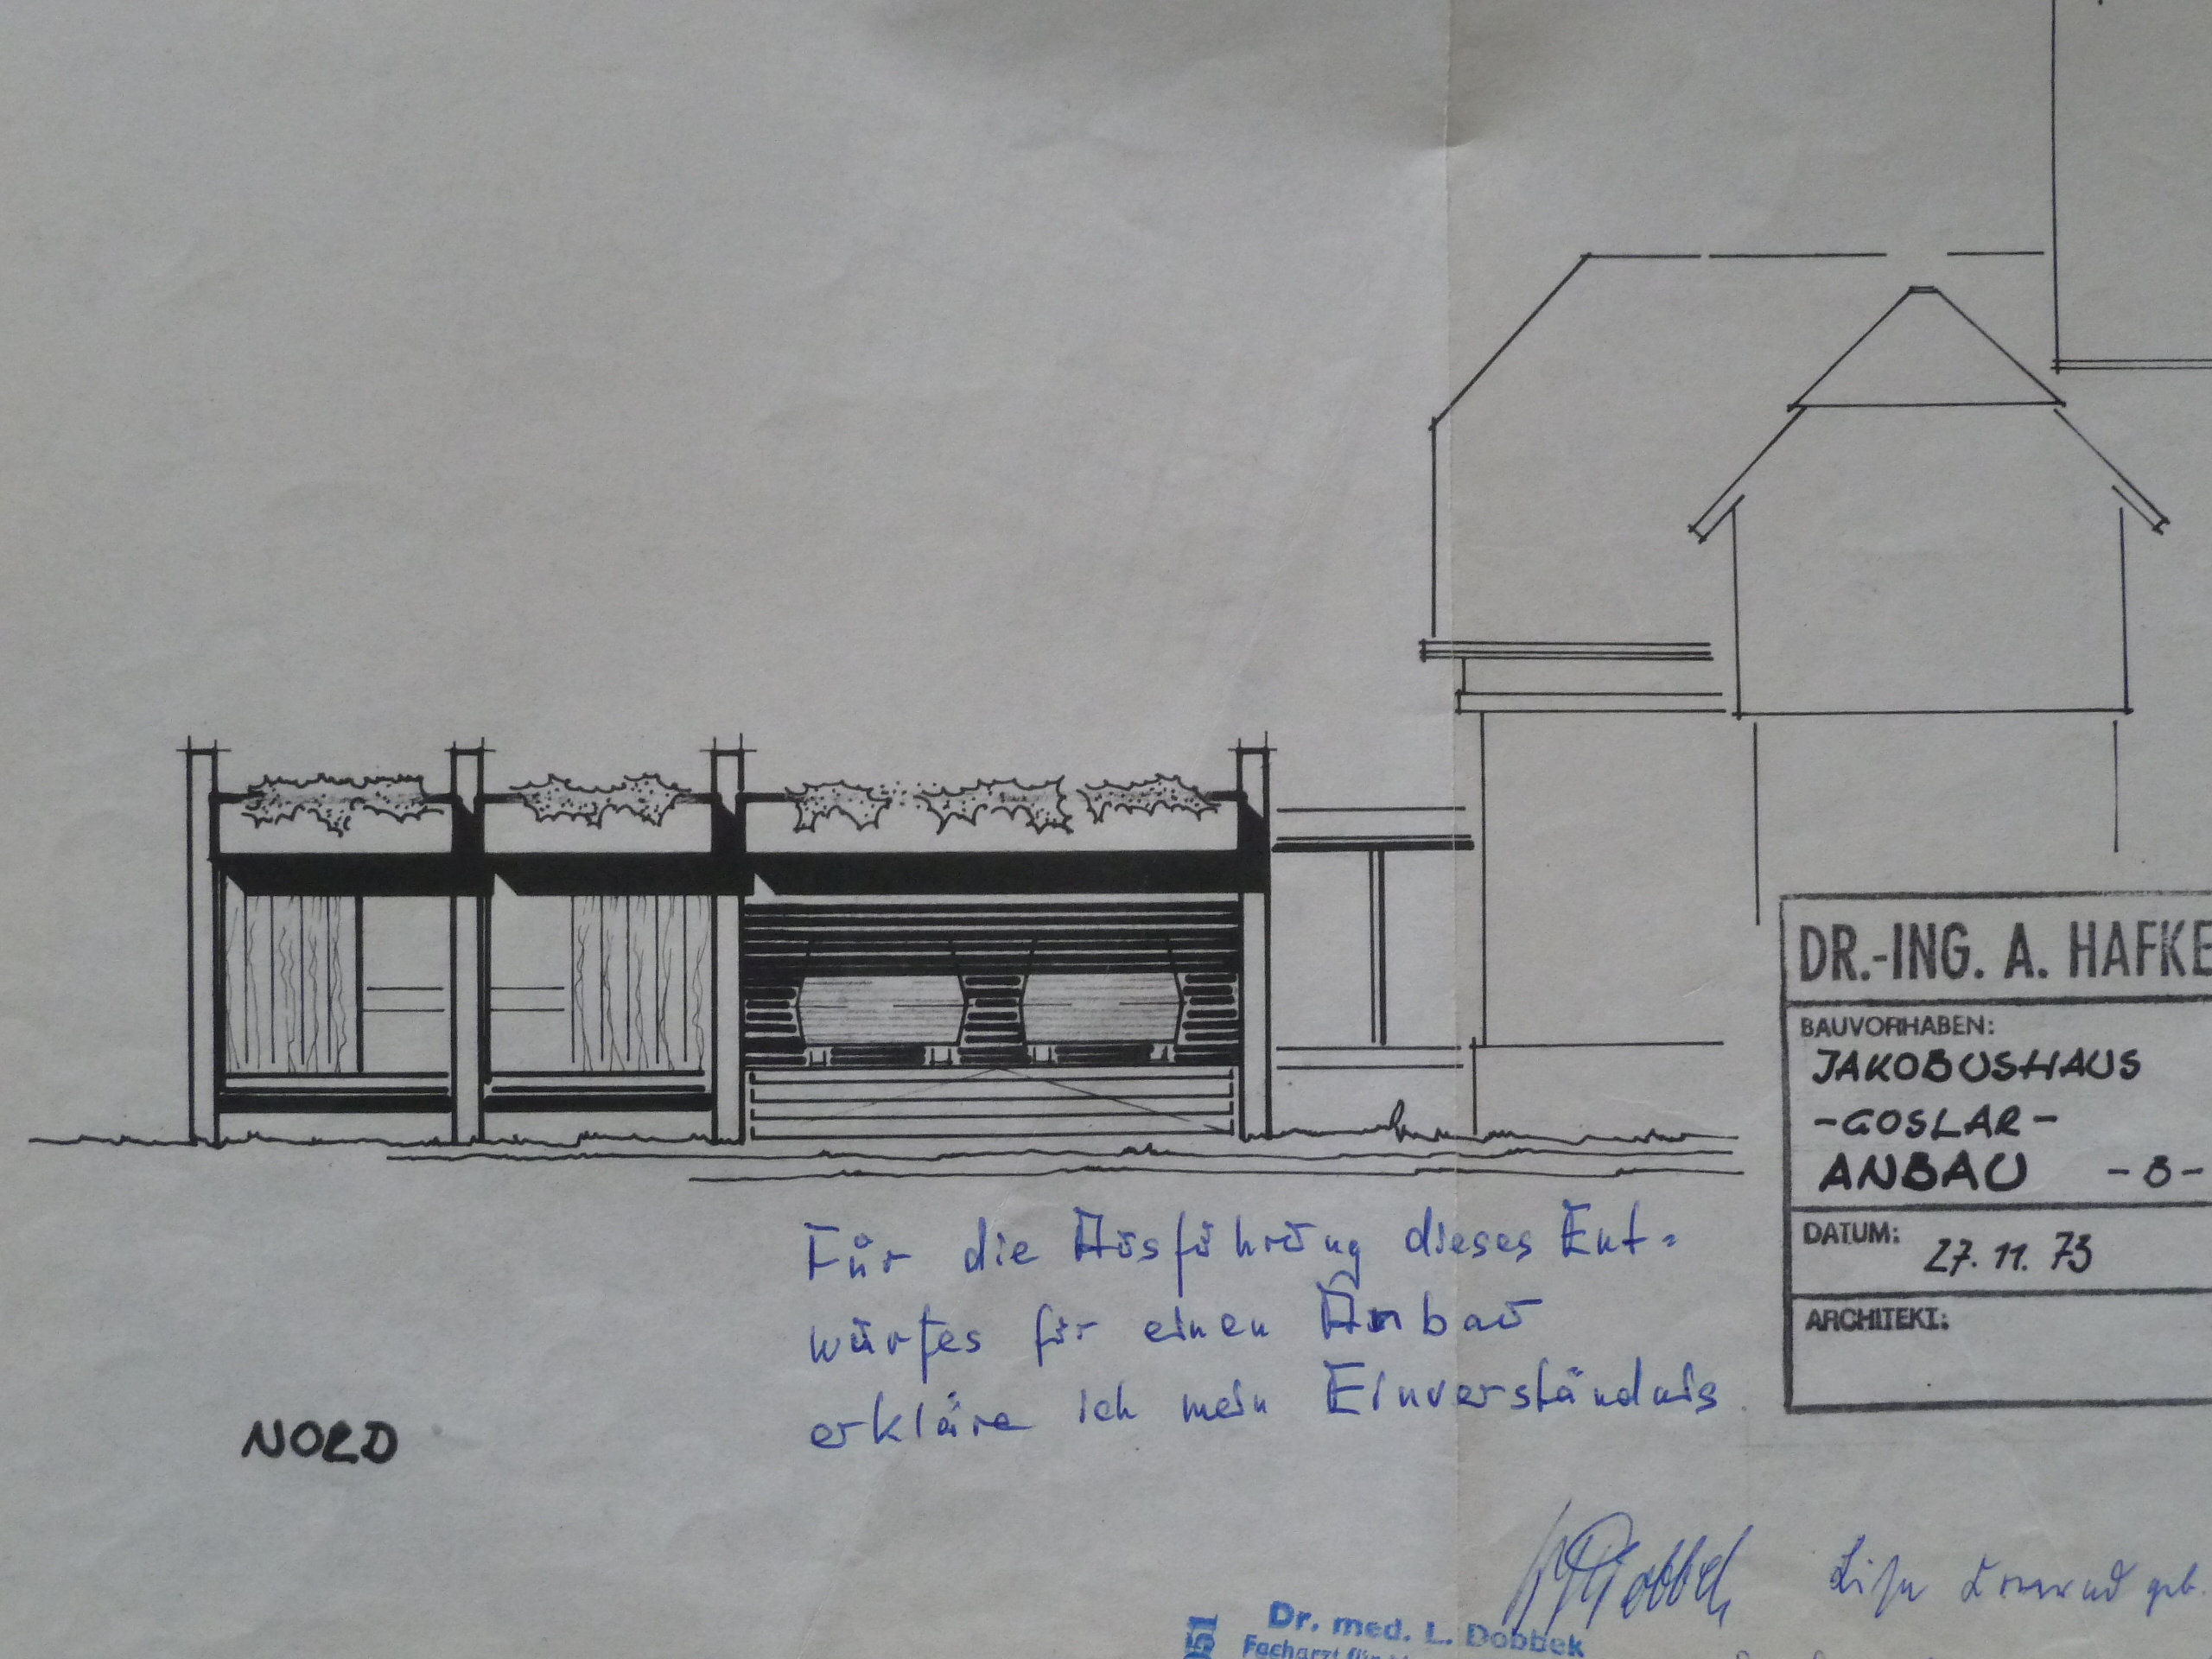 DR.-ING. A. HAFKE
BAUVORHABEN:
JAKOBUSHAUS
-GOSLAR-
ANBAU -8-
DATUM: 27.11.73
ARCHITEKT:
Für die Ausführung dieses Ent=
wurfes für einen Anbau
erkläre ich mein Einverständnis
NORD
Dobbek
geb.
051
Dr. med. L. Dobbek
Facharzt für